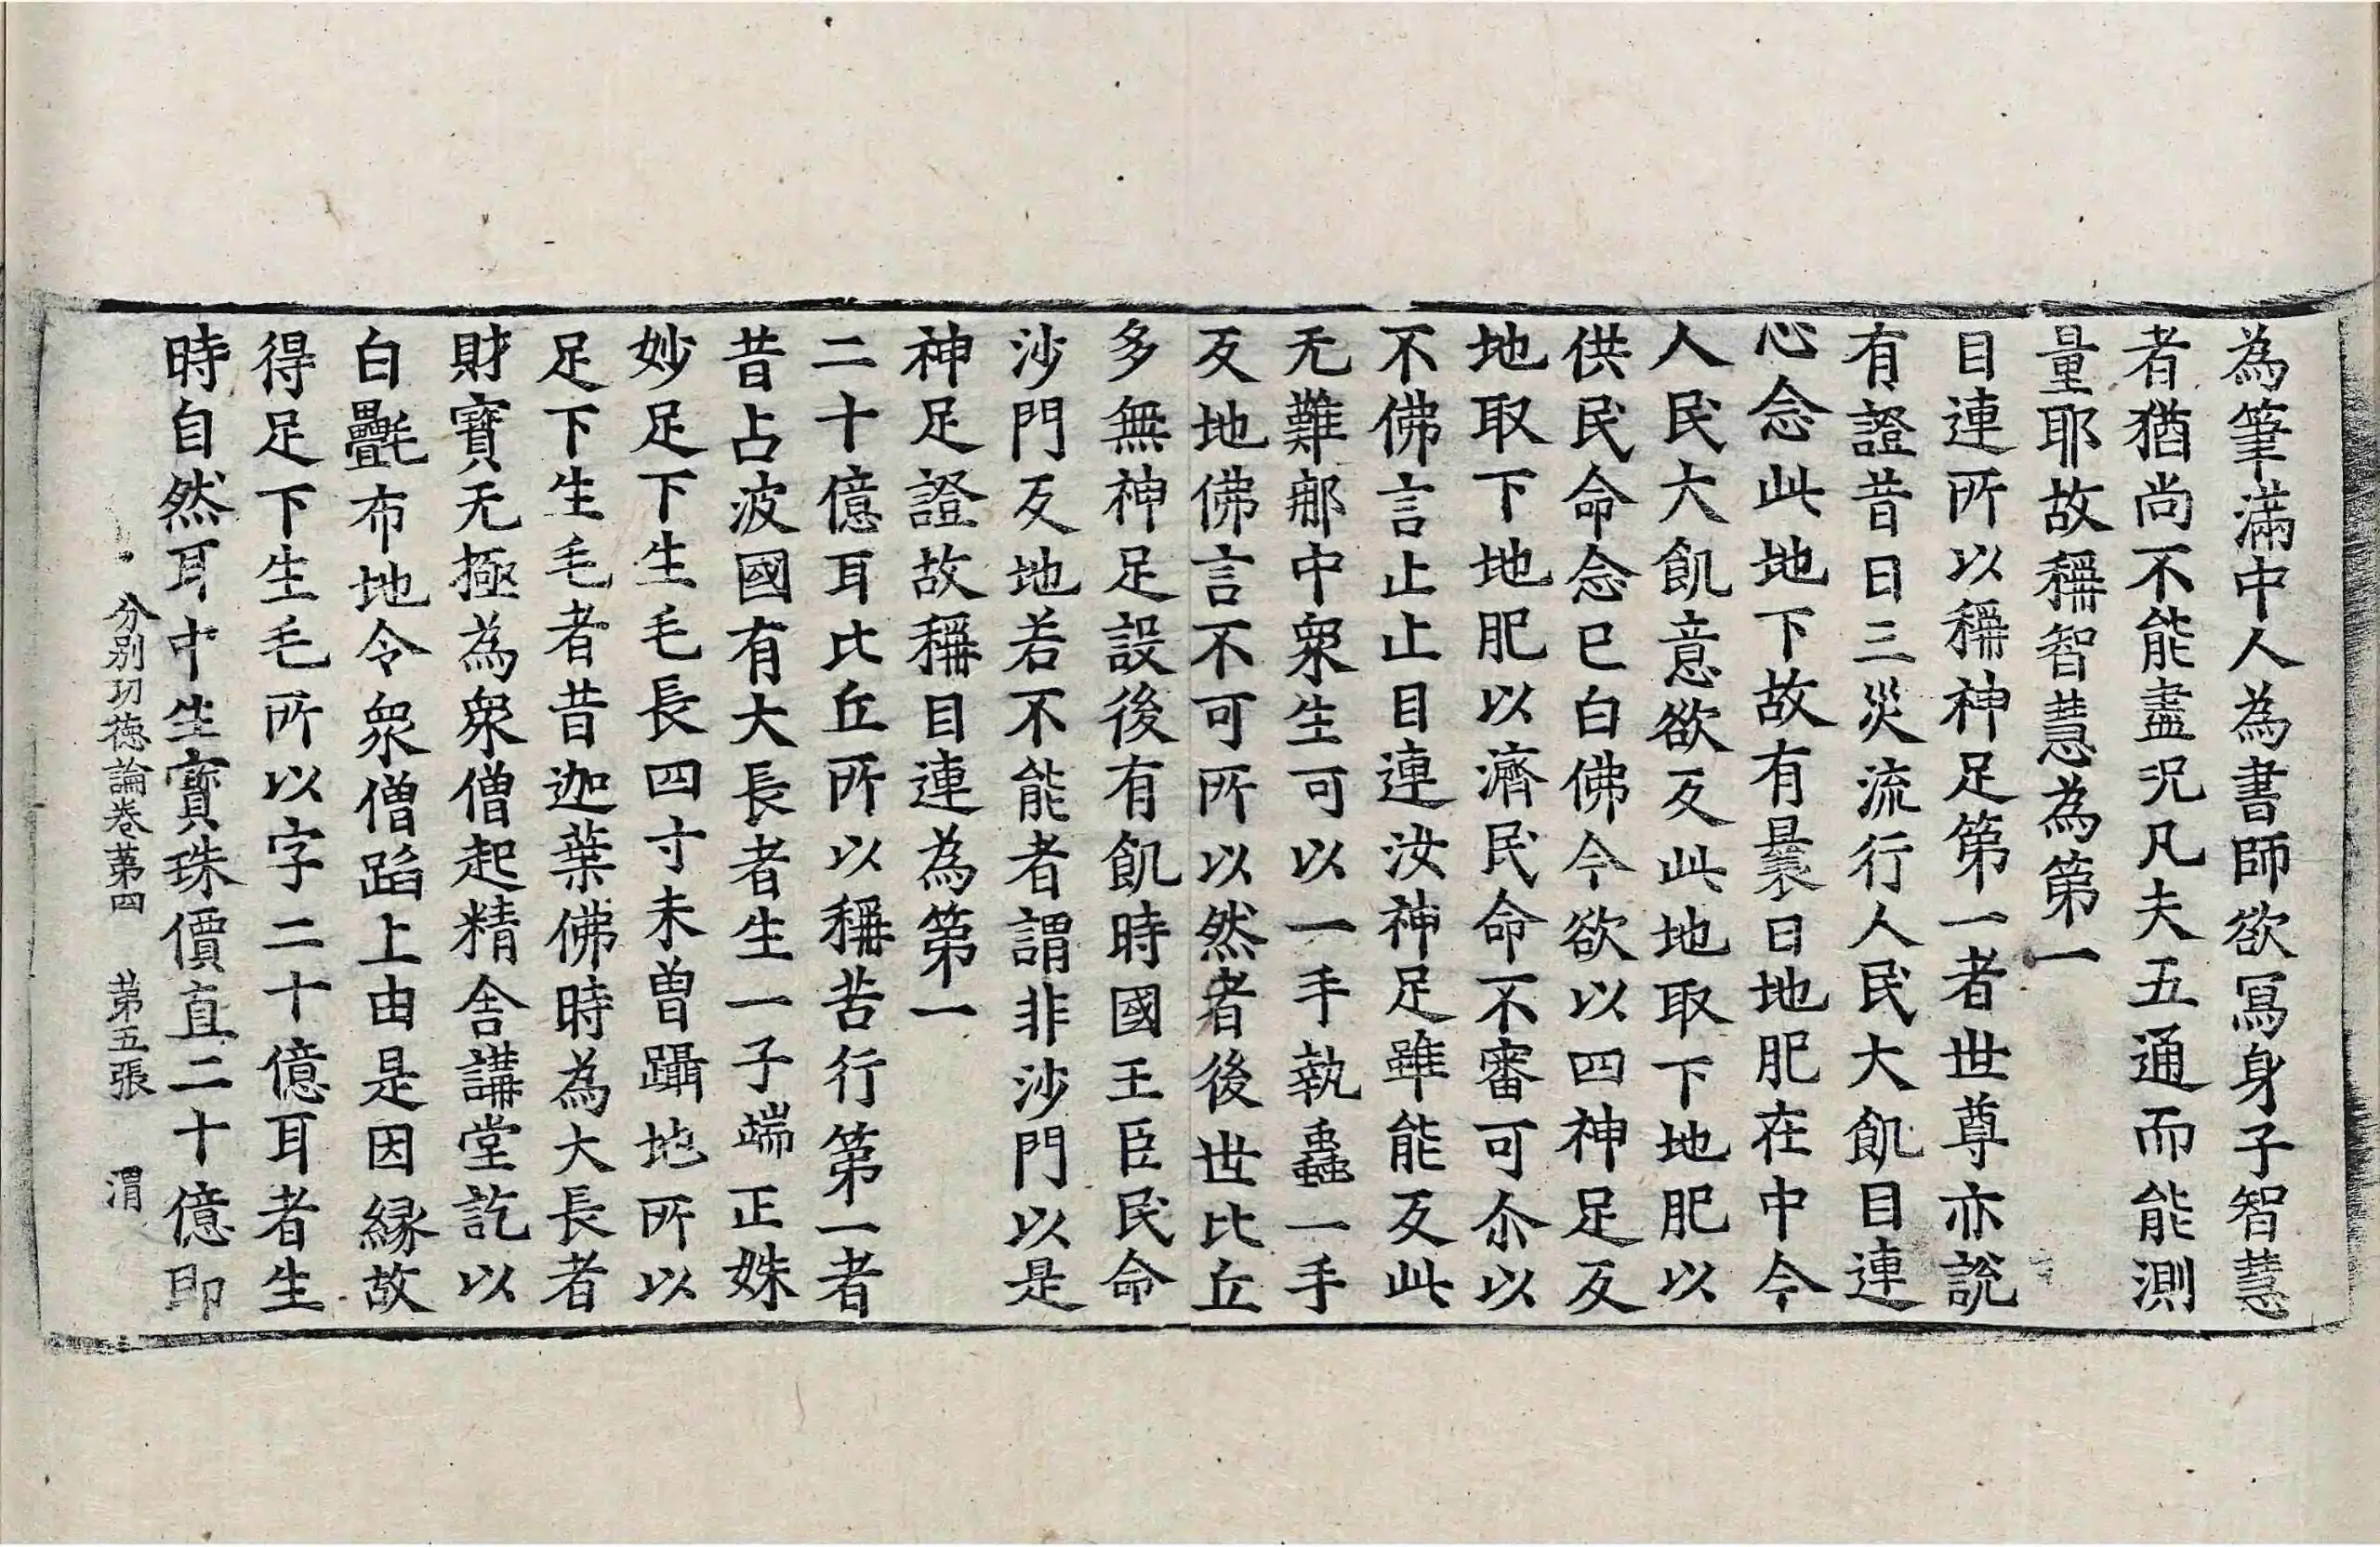 為筆滿中人為書師欲冩身子智慧
者猶尚不能盡況凡夫五通而能測
量耶故稱智慧為第一
目連所以稱神足第一者世尊亦說
有證昔日三災流行人民大飢目連
心念此地下故有曩日地肥在中今
人民大飢意欲反此地取下地肥以
供民命念已白佛今欲以四神足反
地取下地肥以濟民命不審可尒以
不佛言止止目連汝神足雖能反此
无難郍中衆生可以一手執蟲一手
反地佛言不可所以然者後世比丘
多無神足設後有飢時國王臣民命
沙門反地若不能者謂非沙門以是
神足證故稱目連為第一
二十億耳比丘所以稱苦行第一者
昔占波國有大長者生一子端正姝
妙足下生毛長四寸未曾躡地所以
足下生毛者昔迦葉佛時為大長者
財寳无極為衆僧起精舍講堂訖以
白㲲布地令衆僧蹈上由是因縁故
得足下生毛所以字二十億耳者生
時自然耳中生寳珠價直二十億即
分別功徳論卷苐四 苐五張 渭